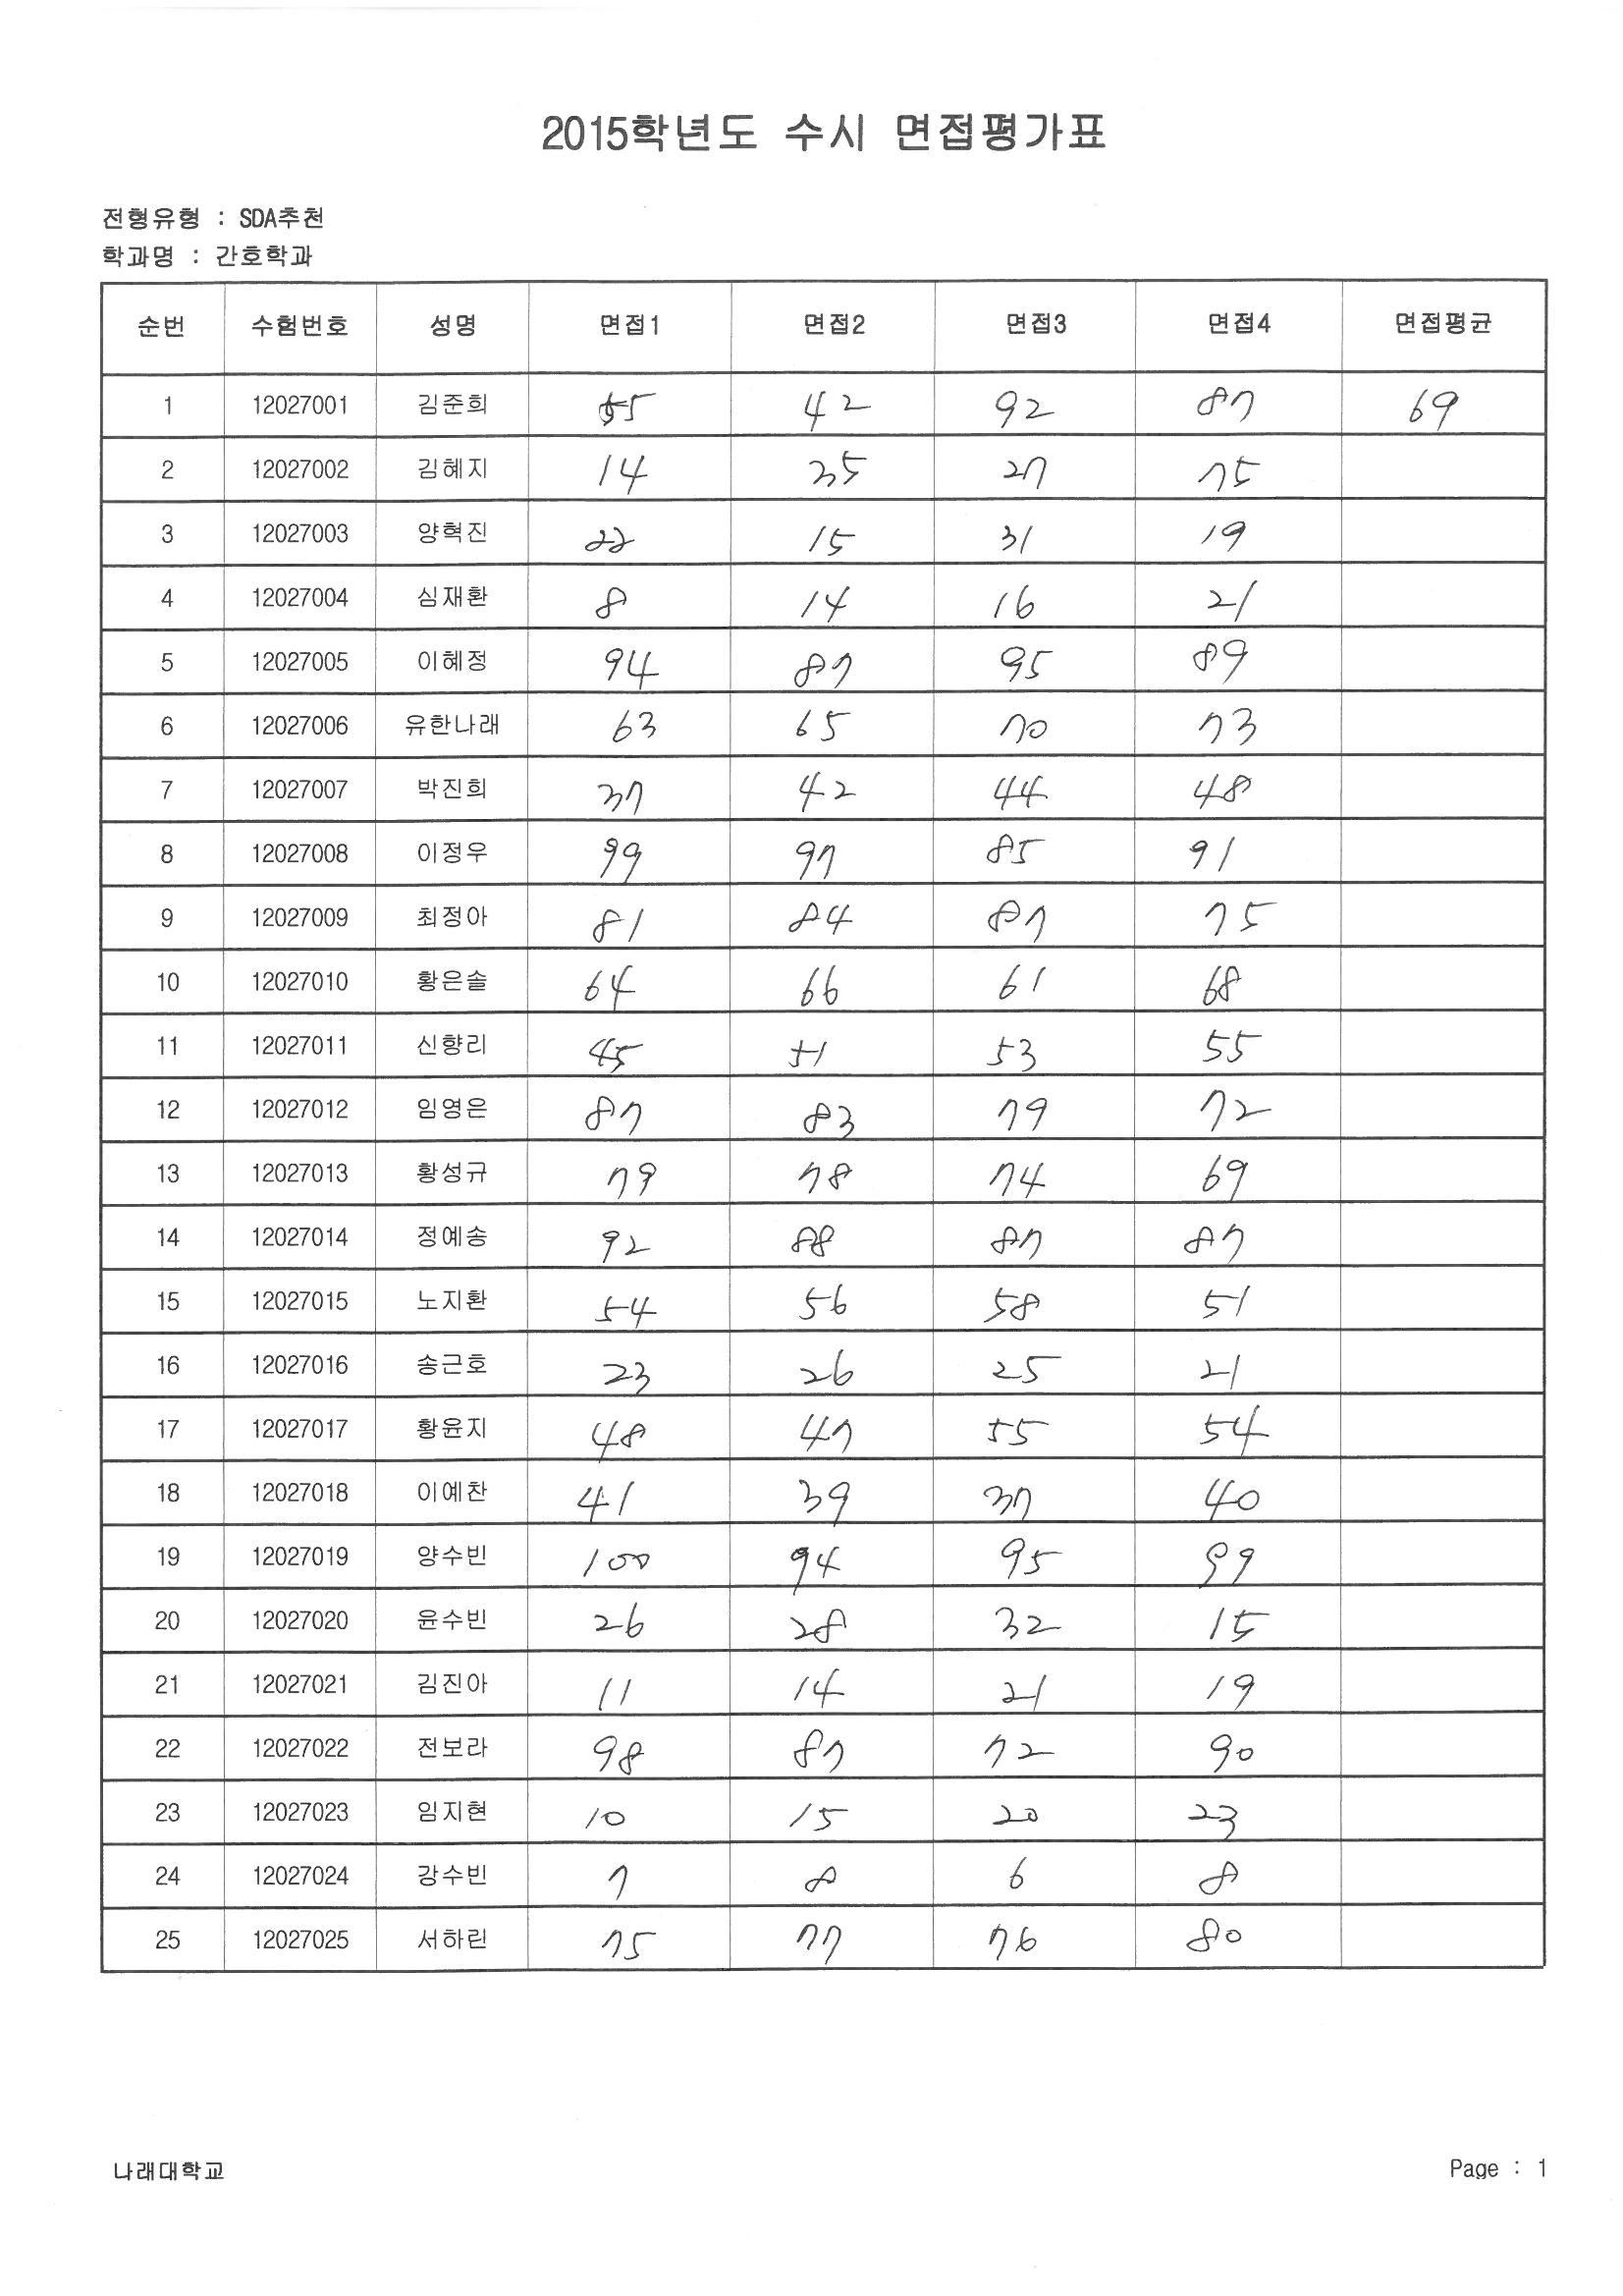 2015학년도 수시 면접평가표
전형유형 : SDA추천
학과명 : 간호학과
순번 수험번호 성명 면접1 면접2 면접3 면접4 면접평균
1 12027001 김준희 55 42 92 87 69
2 12027002 김혜지 14 35 27 75
3 12027003 양혁진 22 15 31 19
4 12027004 심재환 8 14 16 21
5 12027005 이혜정 94 87 95 89
6 12027006 유한나래 63 65 70 73
7 12027007 박진희 37 42 44 48
8 12027008 이정우 99 97 85 91
9 12027009 최정아 81 84 87 75
10 12027010 황은솔 64 66 61 68
11 12027011 신향리 45 51 53 55
12 12027012 임영은 87 83 79 72
13 12027013 황성규 79 78 74 69
14 12027014 정예송 92 88 87 87
15 12027015 노지환 54 56 58 51
16 12027016 송근호 23 26 25 21
17 12027017 황윤지 48 47 55 54
18 12027018 이예찬 41 39 37 40
19 12027019 양수빈 100 94 95 99
20 12027020 윤수빈 26 28 32 15
21 12027021 김진아 11 14 21 19
22 12027022 전보라 98 87 72 90
23 12027023 임지현 10 15 20 23
24 12027024 강수빈 7 8 6 8
25 12027025 서하린 75 77 76 80
나래대학교 Page : 1